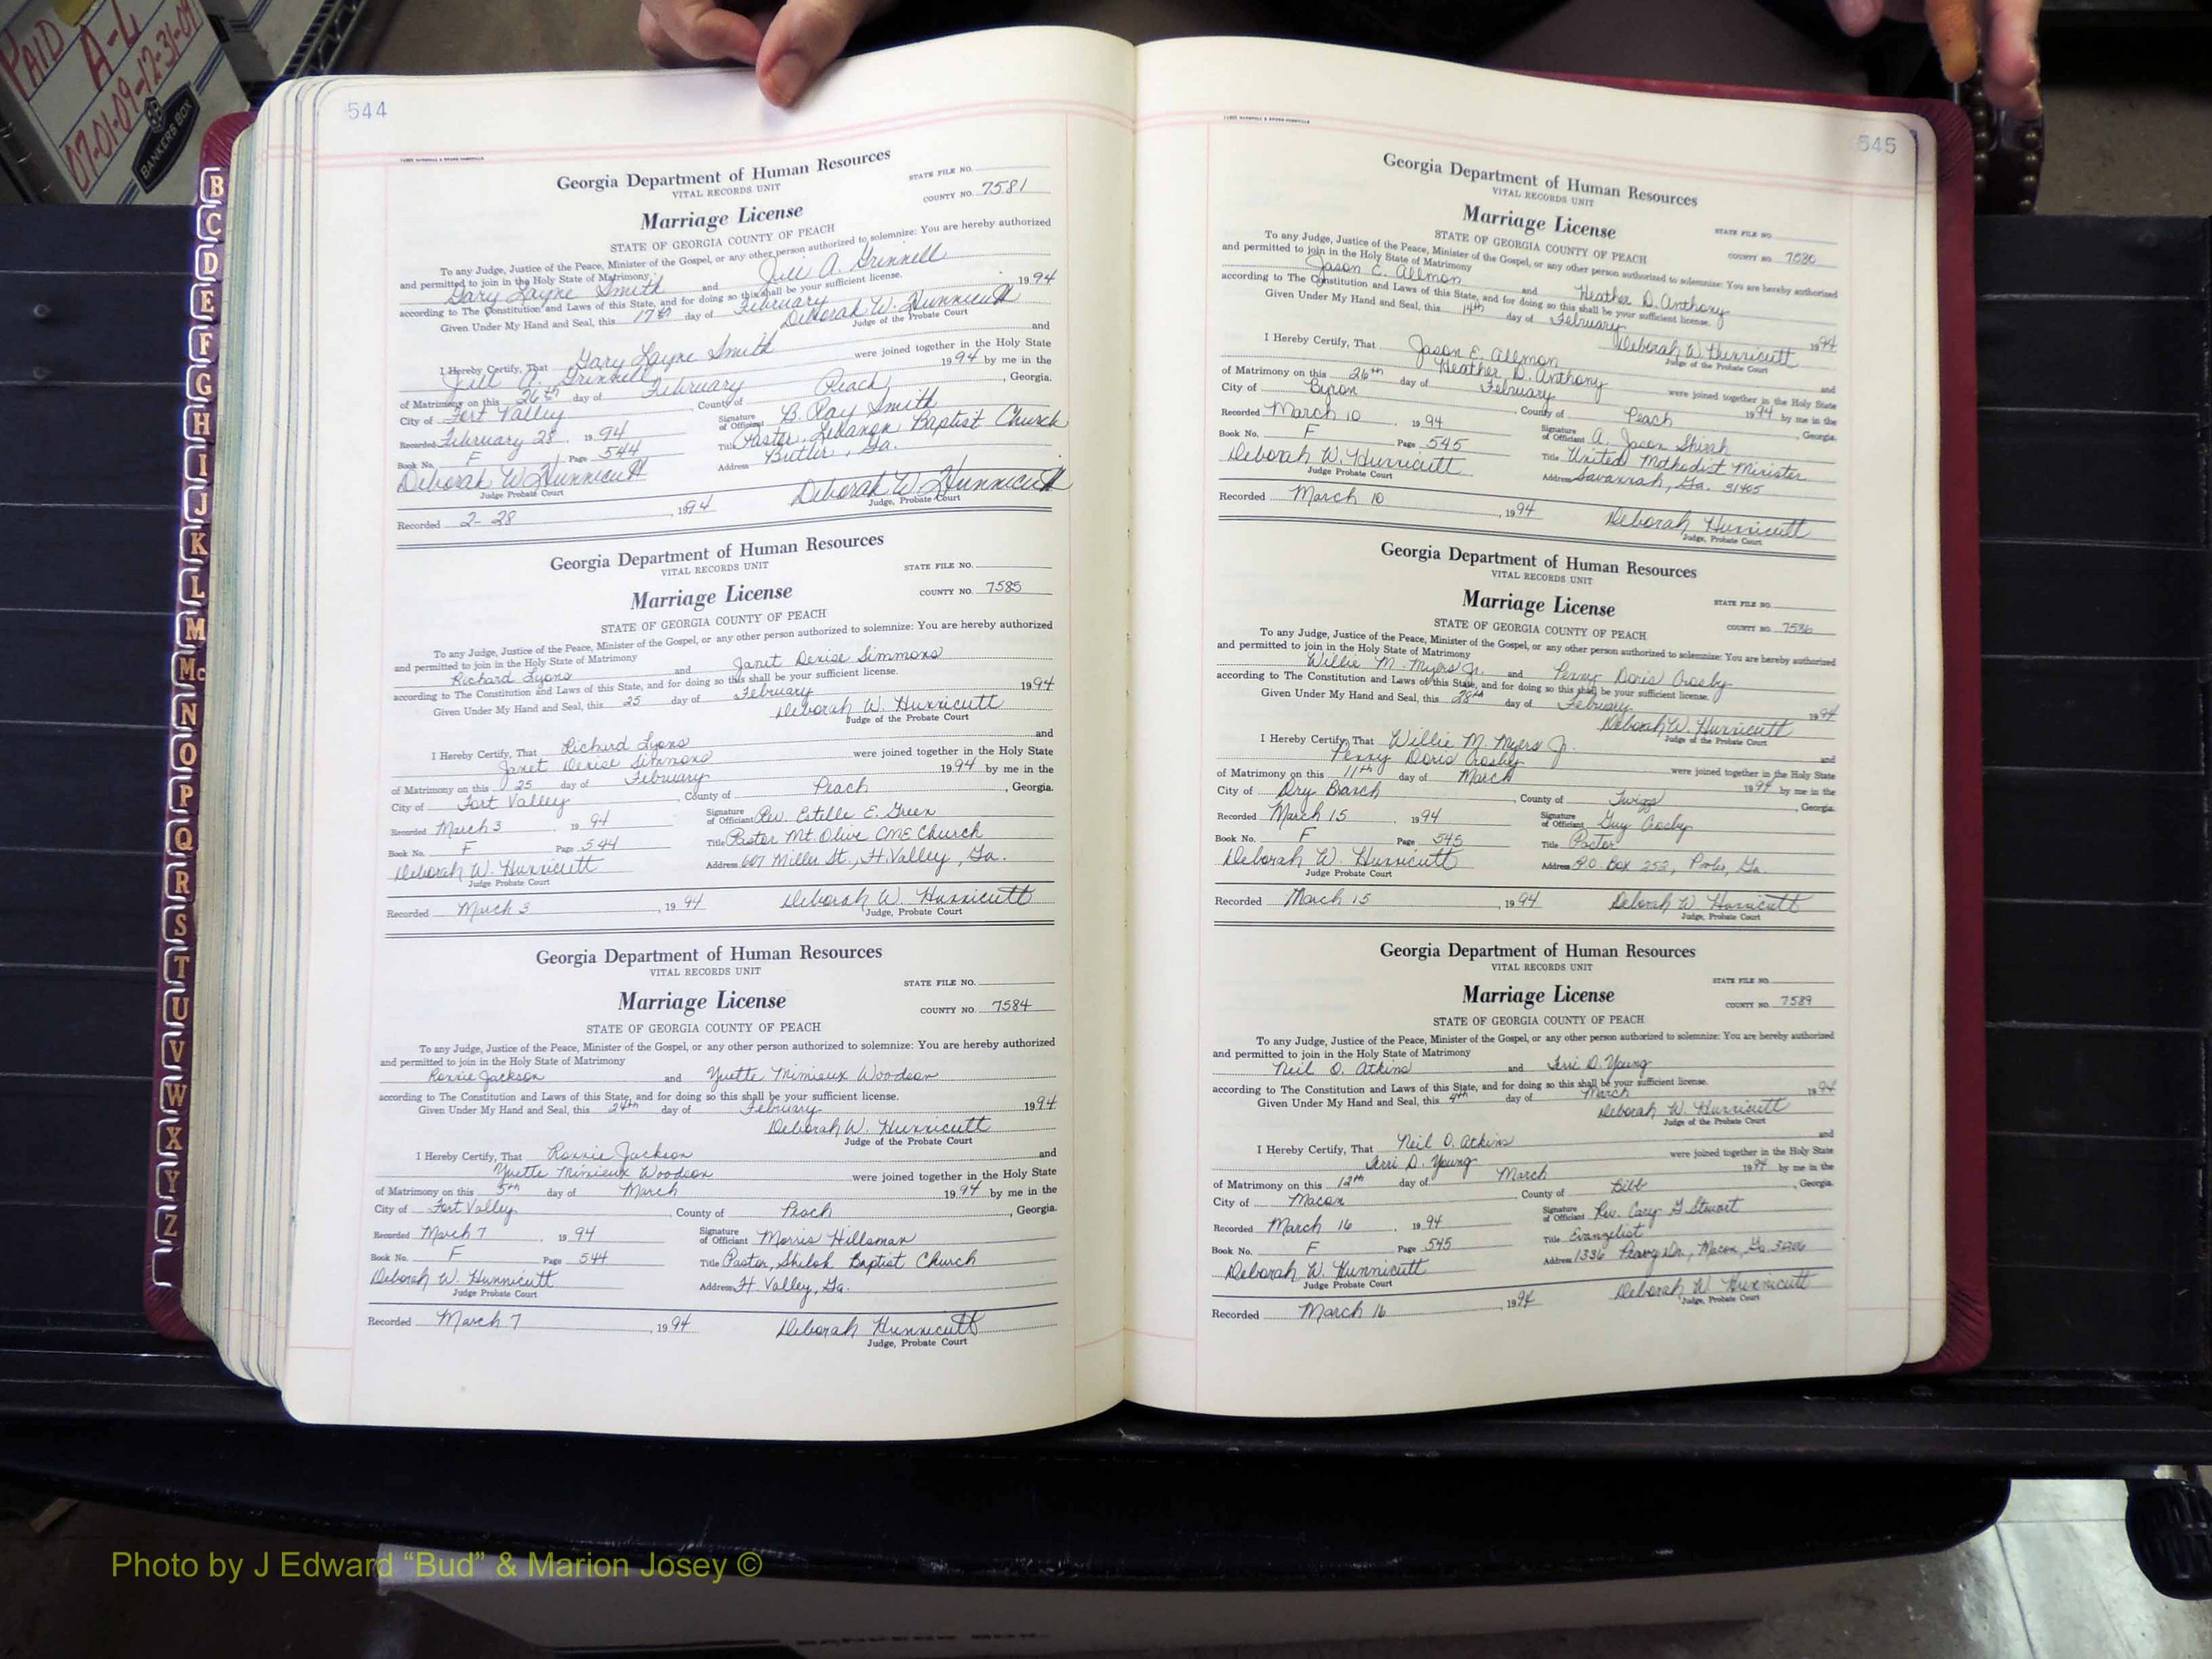 PAID
A-L
07-01-09-12-31-09
BANKERS BOX
B
C
D
E
F
G
H
I
J
K
L
M
Mc
N
O
P
Q
R
S
T
U
V
W
X
Y
Z
544
Georgia Department of Human Resources
VITAL RECORDS UNIT
STATE FILE NO.
COUNTY NO. 7581
Marriage License
STATE OF GEORGIA COUNTY OF PEACH
To any Judge, Justice of the Peace, Minister of the Gospel, or any other person authorized to solemnize: You are hereby authorized
and permitted to join in the Holy State of Matrimony
Gary Layne Smith and Jill A. Grinnell
according to The Constitution and Laws of this State, and for doing so this shall be your sufficient license.
Given Under My Hand and Seal, this 17th day of February 1994
Deborah W. Hunnicutt
Judge of the Probate Court
I Hereby Certify, That Gary Layne Smith and
Jill A. Grinnell were joined together in the Holy State
of Matrimony on this 26th day of February 1994 by me in the
City of Fort Valley, County of Peach, Georgia.
Recorded February 28, 1994 Signature of Officiant B. Ray Smith
Book No. F Page 544 Title Pastor, Lebanon Baptist Church
Deborah W. Hunnicutt Address Butler, Ga.
Judge Probate Court
Recorded 2-28, 1994 Deborah W. Hunnicutt
Judge, Probate Court
Georgia Department of Human Resources
VITAL RECORDS UNIT
STATE FILE NO.
Marriage License COUNTY NO. 7585
STATE OF GEORGIA COUNTY OF PEACH
To any Judge, Justice of the Peace, Minister of the Gospel, or any other person authorized to solemnize: You are hereby authorized
and permitted to join in the Holy State of Matrimony
Richard Lyons and Janet Denise Simmons
according to The Constitution and Laws of this State, and for doing so this shall be your sufficient license.
Given Under My Hand and Seal, this 25 day of February 1994
Deborah W. Hunnicutt
Judge of the Probate Court
I Hereby Certify, That Richard Lyons and
Janet Denise Simmons were joined together in the Holy State
of Matrimony on this 25 day of February 1994 by me in the
City of Fort Valley, County of Peach, Georgia.
Recorded March 3, 1994 Signature of Officiant Rev. Estelle E. Green
Book No. F Page 544 Title Pastor Mt. Olive CME Church
Deborah W. Hunnicutt Address 607 Miller St., Ft. Valley, Ga.
Judge Probate Court
Recorded March 3, 1994 Deborah W. Hunnicutt
Judge, Probate Court
Georgia Department of Human Resources
VITAL RECORDS UNIT
STATE FILE NO.
Marriage License COUNTY NO. 7584
STATE OF GEORGIA COUNTY OF PEACH
To any Judge, Justice of the Peace, Minister of the Gospel, or any other person authorized to solemnize: You are hereby authorized
and permitted to join in the Holy State of Matrimony
Ronnie Jackson and Yvette Mimieux Woodson
according to The Constitution and Laws of this State, and for doing so this shall be your sufficient license.
Given Under My Hand and Seal, this 24th day of February 1994
Deborah W. Hunnicutt
Judge of the Probate Court
I Hereby Certify, That Ronnie Jackson and
Yvette Mimieux Woodson were joined together in the Holy State
of Matrimony on this 5th day of March 1994 by me in the
City of Fort Valley, County of Peach, Georgia.
Recorded March 7, 1994 Signature of Officiant Morris Hillsman
Book No. F Page 544 Title Pastor, Shiloh Baptist Church
Deborah W. Hunnicutt Address Ft. Valley, Ga.
Judge Probate Court
Recorded March 7, 1994 Deborah Hunnicutt
Judge, Probate Court
545
Georgia Department of Human Resources
VITAL RECORDS UNIT
Marriage License STATE FILE NO.
STATE OF GEORGIA COUNTY OF PEACH COUNTY NO. 7580
To any Judge, Justice of the Peace, Minister of the Gospel, or any other person authorized to solemnize: You are hereby authorized
and permitted to join in the Holy State of Matrimony
Jason E. Allmon and Heather D. Anthony
according to The Constitution and Laws of this State, and for doing so this shall be your sufficient license.
Given Under My Hand and Seal, this 14th day of February 1994
Deborah W. Hunnicutt
Judge of the Probate Court
I Hereby Certify, That Jason E. Allmon and
Heather D. Anthony were joined together in the Holy State
of Matrimony on this 26th day of February 1994 by me in the
City of Byron, County of Peach, Georgia.
Recorded March 10, 1994 Signature of Officiant A. Jason Shirah
Book No. F Page 545 Title United Methodist Minister
Deborah W. Hunnicutt Address Savannah, Ga. 31405
Judge Probate Court
Recorded March 10, 1994 Deborah Hunnicutt
Judge, Probate Court
Georgia Department of Human Resources
VITAL RECORDS UNIT
Marriage License STATE FILE NO.
STATE OF GEORGIA COUNTY OF PEACH COUNTY NO.
To any Judge, Justice of the Peace, Minister of the Gospel, or any other person authorized to solemnize: You are hereby authorized
and permitted to join in the Holy State of Matrimony
Willie M. Myers Jr. and Penny Doris Crosby
according to The Constitution and Laws of this State, and for doing so this shall be your sufficient license.
Given Under My Hand and Seal, this 28th day of February 1994
Deborah W. Hunnicutt
Judge of the Probate Court
I Hereby Certify, That Willie M. Myers Jr. and
Penny Doris Crosby were joined together in the Holy State
of Matrimony on this 11th day of March 1994 by me in the
City of Dry Branch, County of Twiggs, Georgia.
Recorded March 15, 1994 Signature of Officiant Guy Crosby
Book No. F Page 545 Title Pastor
Deborah W. Hunnicutt Address P.O. Box 252, Ga.
Judge Probate Court
Recorded March 15, 1994 Deborah W. Hunnicutt
Judge, Probate Court
Georgia Department of Human Resources
VITAL RECORDS UNIT
STATE FILE NO.
Marriage License COUNTY NO. 7589
STATE OF GEORGIA COUNTY OF PEACH
To any Judge, Justice of the Peace, Minister of the Gospel, or any other person authorized to solemnize: You are hereby authorized
and permitted to join in the Holy State of Matrimony
Neil O. Atkins and Terri D. Young
according to The Constitution and Laws of this State, and for doing so this shall be your sufficient license.
Given Under My Hand and Seal, this 4th day of March 1994
Deborah W. Hunnicutt
Judge of the Probate Court
I Hereby Certify, That Neil O. Atkins and
Terri D. Young were joined together in the Holy State
of Matrimony on this 12th day of March 1994 by me in the
City of Macon, County of Bibb, Georgia.
Recorded March 16, 1994 Signature of Officiant Rev. Cary G. Stewart
Book No. F Page 545 Title Evangelist
Deborah W. Hunnicutt Address 1336 Dr., Macon, Ga.
Judge Probate Court
Recorded March 16, 1994 Deborah W. Hunnicutt
Judge, Probate Court
Photo by J Edward “Bud” & Marion Josey ©